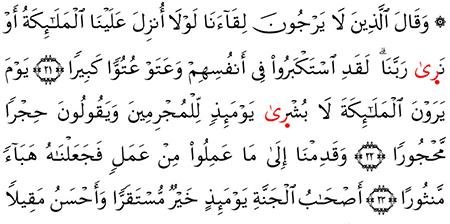 ۞ وَقَالَ ٱلَّذِينَ لَا يَرْجُونَ لِقَآءَنَا لَوْلَآ أُنزِلَ عَلَيْنَا ٱلْمَلَـٰٓئِكَةُ أَوْ
نَرَىٰ رَبَّنَا ۗ لَقَدِ ٱسْتَكْبَرُوا۟ فِىٓ أَنفُسِهِمْ وَعَتَوْ عُتُوًّا كَبِيرًا ﴿٢١﴾ يَوْمَ
يَرَوْنَ ٱلْمَلَـٰٓئِكَةَ لَا بُشْرَىٰ يَوْمَئِذٍ لِّلْمُجْرِمِينَ وَيَقُولُونَ حِجْرًا
مَّحْجُورًا ﴿٢٢﴾ وَقَدِمْنَآ إِلَىٰ مَا عَمِلُوا۟ مِنْ عَمَلٍ فَجَعَلْنَـٰهُ هَبَآءً
مَّنثُورًا ﴿٢٣﴾ أَصْحَـٰبُ ٱلْجَنَّةِ يَوْمَئِذٍ خَيْرٌ مُّسْتَقَرًّا وَأَحْسَنُ مَقِيلًا